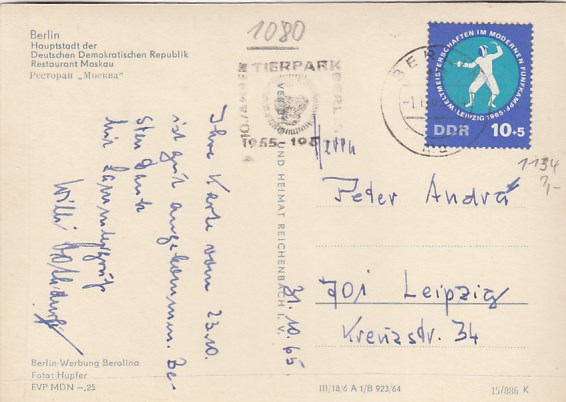 1080
Berlin
Hauptstadt der
Deutschen Demokratischen Republik
Restaurant Moskau
Ресторан „Москва“
TIERPARK
1955-196
Ihre Karte vom 23.10.
ist gut angekommen. Be-
sten Dank
mit
Willi
31.10.65.
VERLAG BILD UND HEIMAT REICHENBACH I. V.
WELTMEISTERSCHAFTEN IM MODERNEN FÜNFKAMPF · LEIPZIG 1965
DDR 10+5
BER
1134
Herrn
Peter Andrä
701 Leipzig
Kreuzstr. 34
Berlin-Werbung Berolina
Foto: Hupfer
EVP MDN -,25
III/18/6 A 1/B 923/64
15/886 K